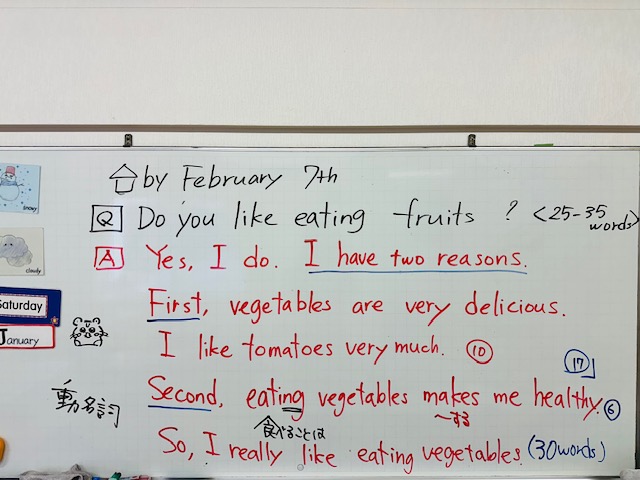 by February 7th
Q Do you like eating fruits ? <25-35 words>
A Yes, I do. I have two reasons.
First, vegetables are very delicious.
I like tomatoes very much. ⑩
⑰
Second, eating vegetables makes me healthy. ⑥
食べることは
〜する
So, I really like eating vegetables. (30words)
動名詞
snowy
cloudy
Saturday
January